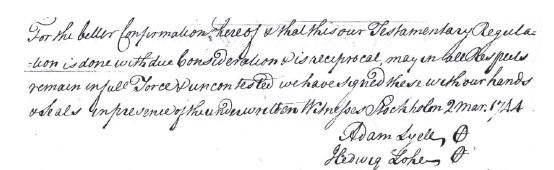 For the better Confirmation hereof & that this our Testamentary Regula=
=tion is done with due Consideration & is reciprocal, may in all Respects
remain in full Force & uncontested we have signed these with our hands
& Seals in presence of the underwritten Witnesses Stockholm 2 Mar. 1744
Adam Lyell
Hedwig Lohe